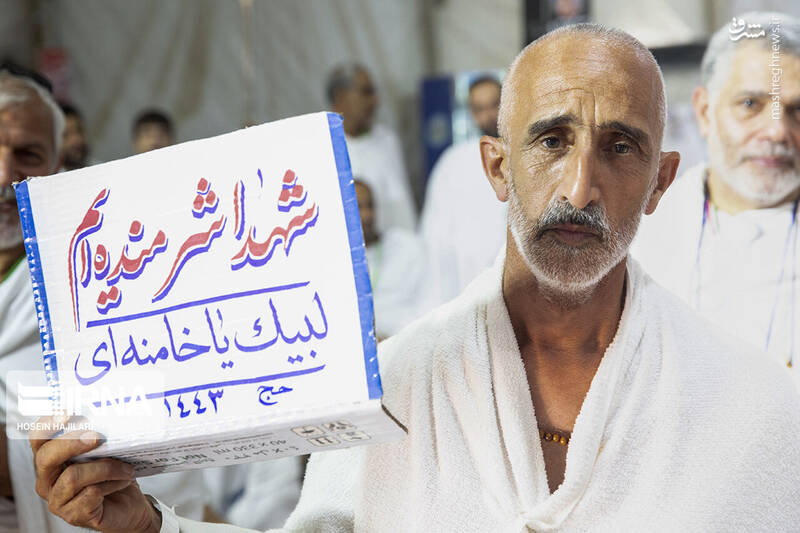 شهدا شرمنده ایم
لبیك یا خامنه ای
حج ۱۴۴۳
40 X 330 ml
Not For
IRNA
HOSEIN HAJILARI
مشرق
mashreghnews.ir